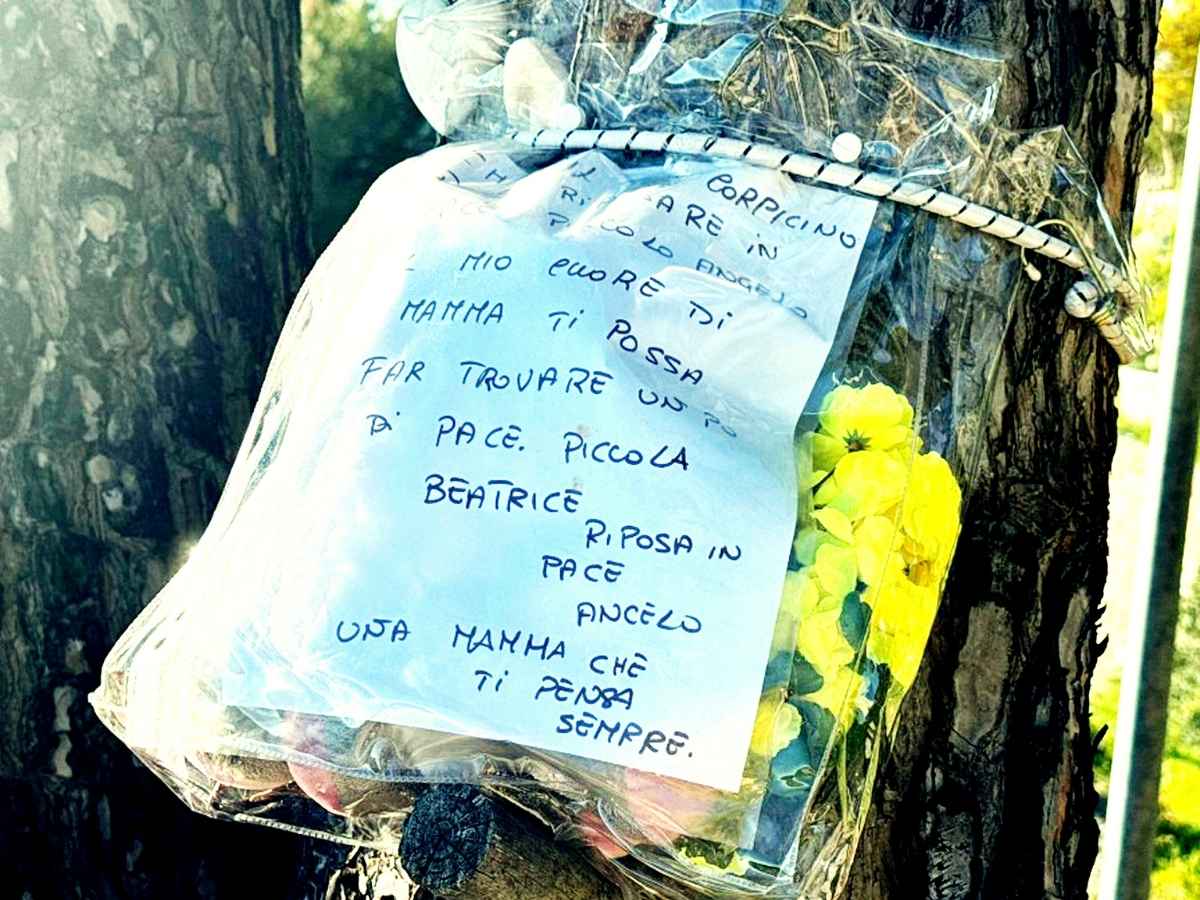 CORPICINO
ARE IN
PICCOLO ANGELO
MIO CUORE DI
MAMMA TI POSSA
FAR TROVARE UN PO
DI PACE. PICCOLA
BEATRICE
RIPOSA IN
PACE
ANGELO
UNA MAMMA CHE
TI PENSA
SEMPRE.